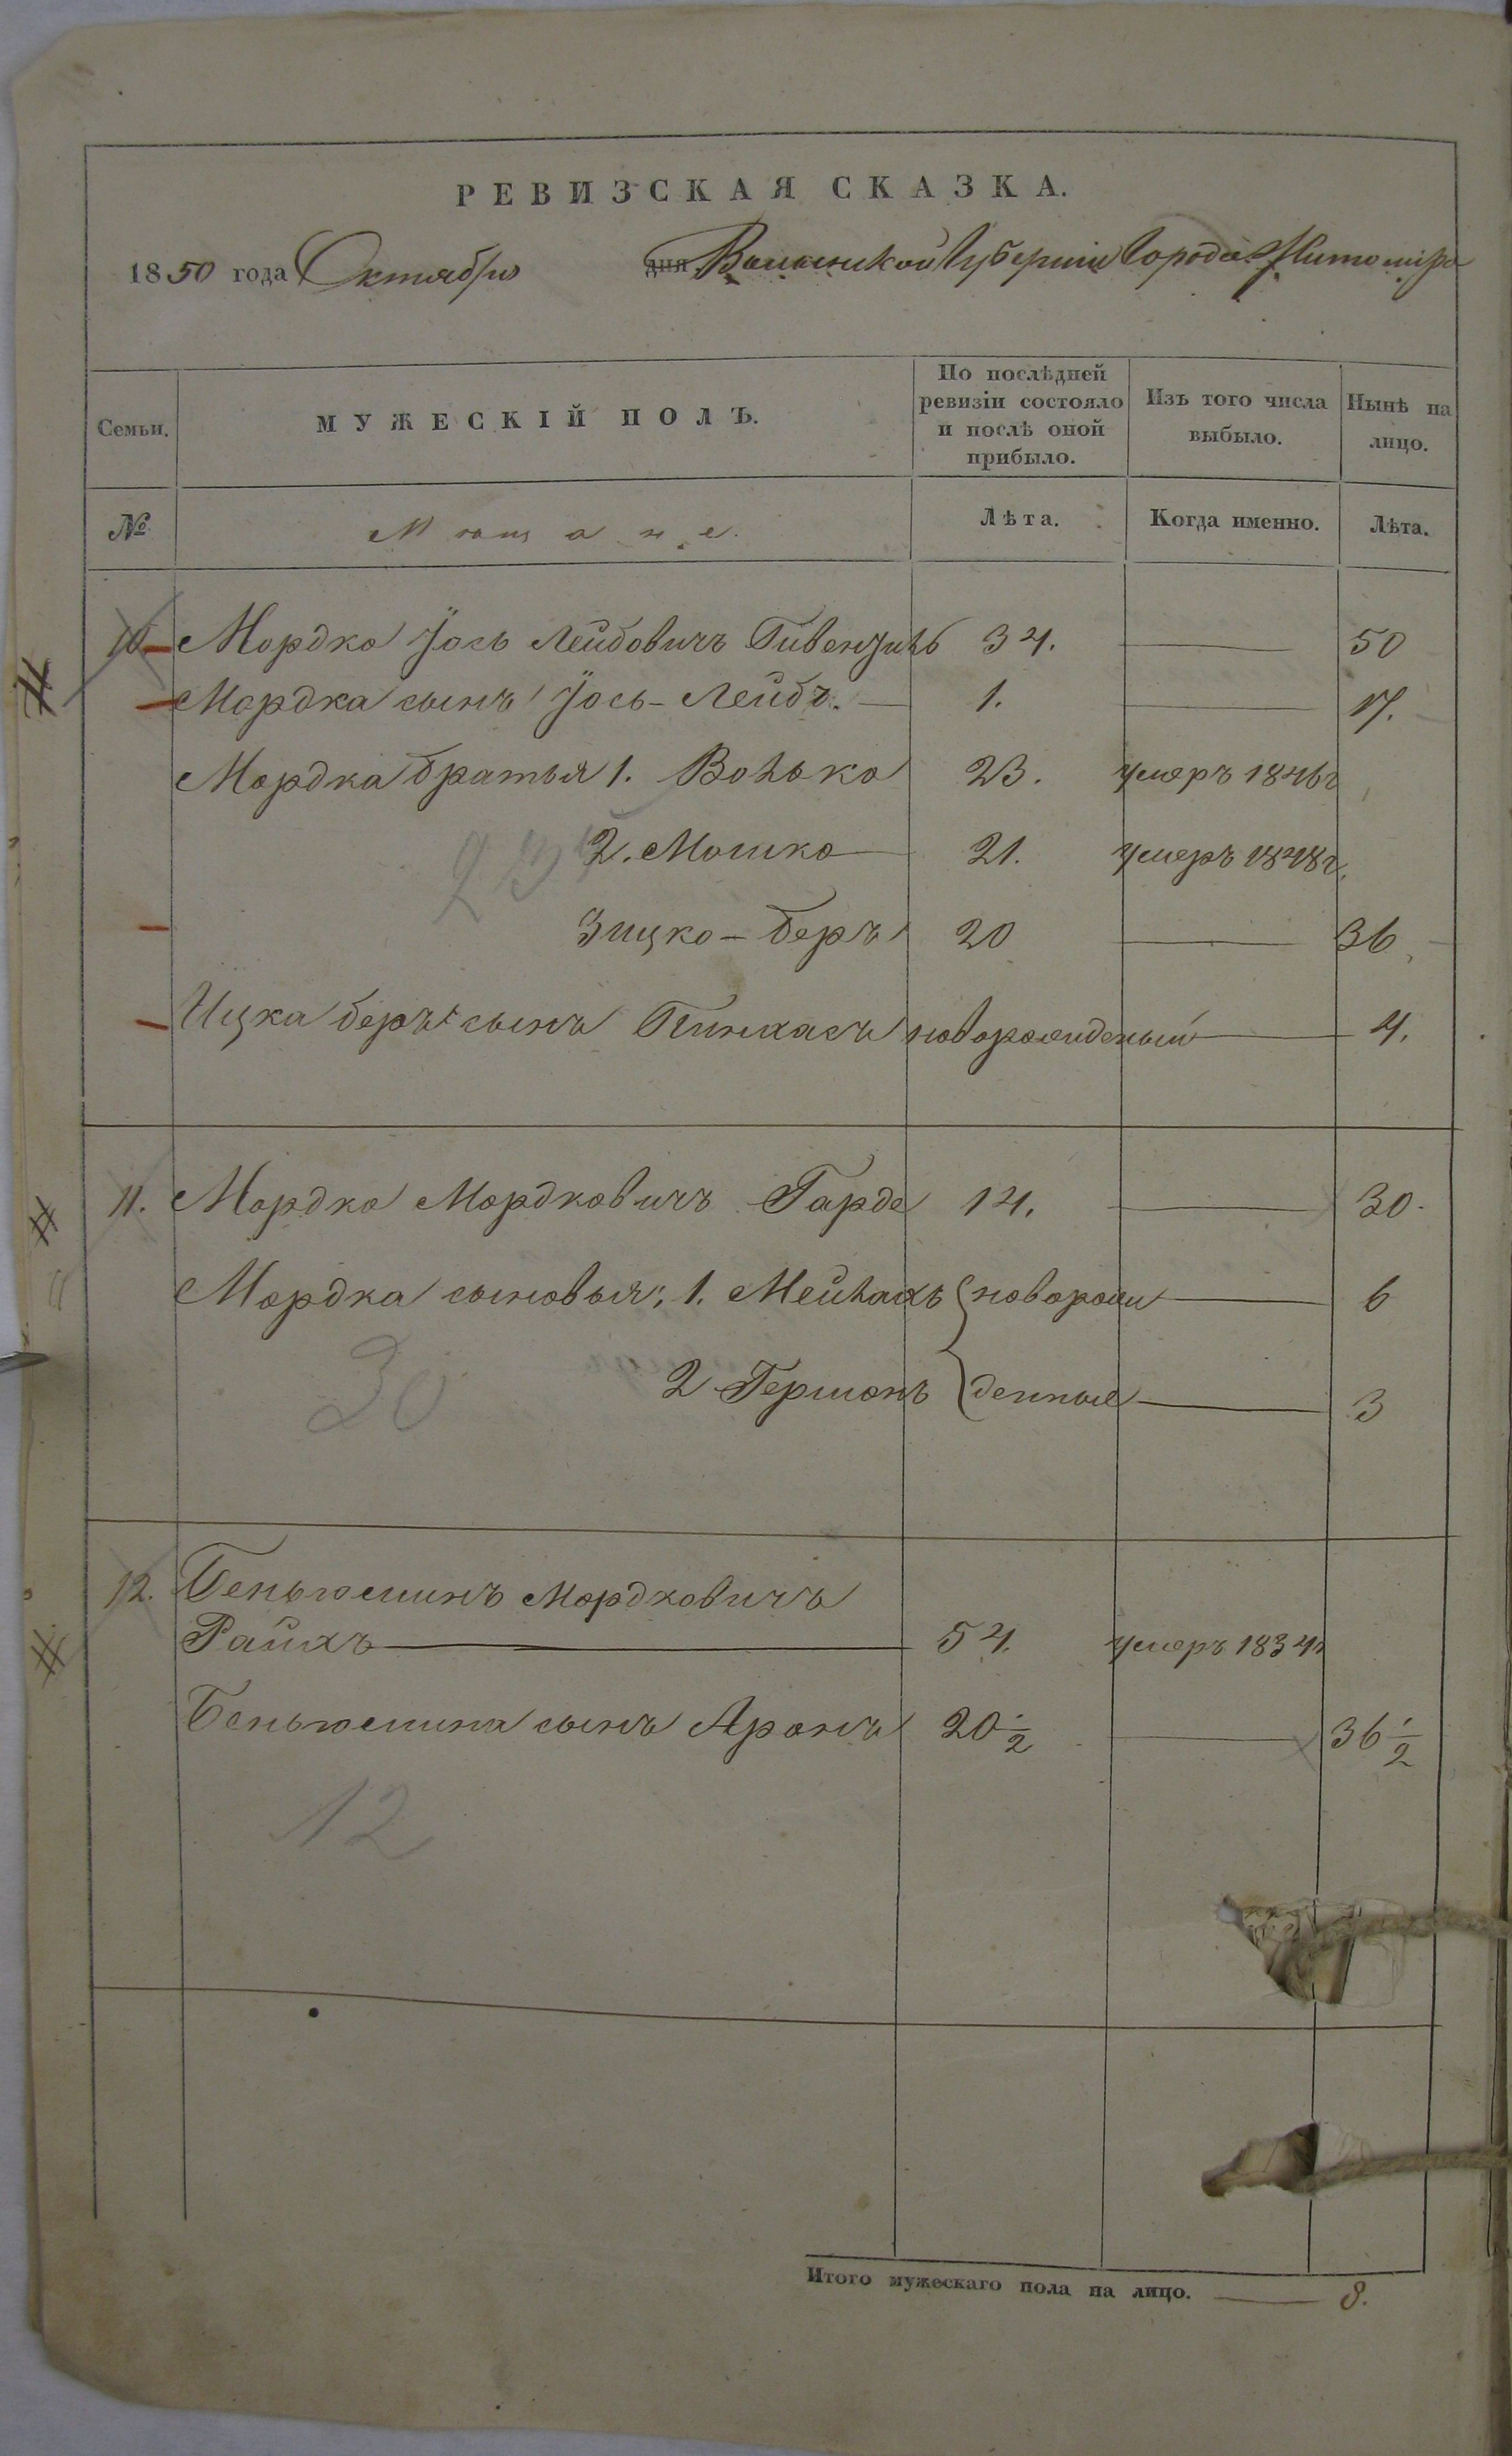 РЕВИЗСКАЯ СКАЗКА.
1850 года Октября дня Волынской Губернии Города Житомира
Семьи. МУЖЕСКІЙ ПОЛЪ. По послѣдней ревизіи состояло и послѣ оной прибыло. Изъ того числа выбыло. Нынѣ на лицо.
№ Мѣщане. Лѣта. Когда именно. Лѣта.
10 Мордко Іось Лейбовичъ 34. 50
Мордка сынъ Іось-Лейбъ. 1. 17.
Мордка братья 1. Волько 23. умеръ 1846г
2. Мошко 21. умеръ 1848г.
3 Ицко-беръ 20 36
Ицка бера сынъ Пинхасъ новорожденый 4.
11. Мордко Мордковичъ Гарде 14. 30.
Мордка сыновья: 1. Мейлахъ новорож 6
30
2 Гершонъ денные 3
12. Беньюминъ Мордковичъ
Райхъ 54. умеръ 1834г
Беньюмина сынъ Аронъ 20 1/2 36 1/2
12
Итого мужескаго пола на лицо. 8.